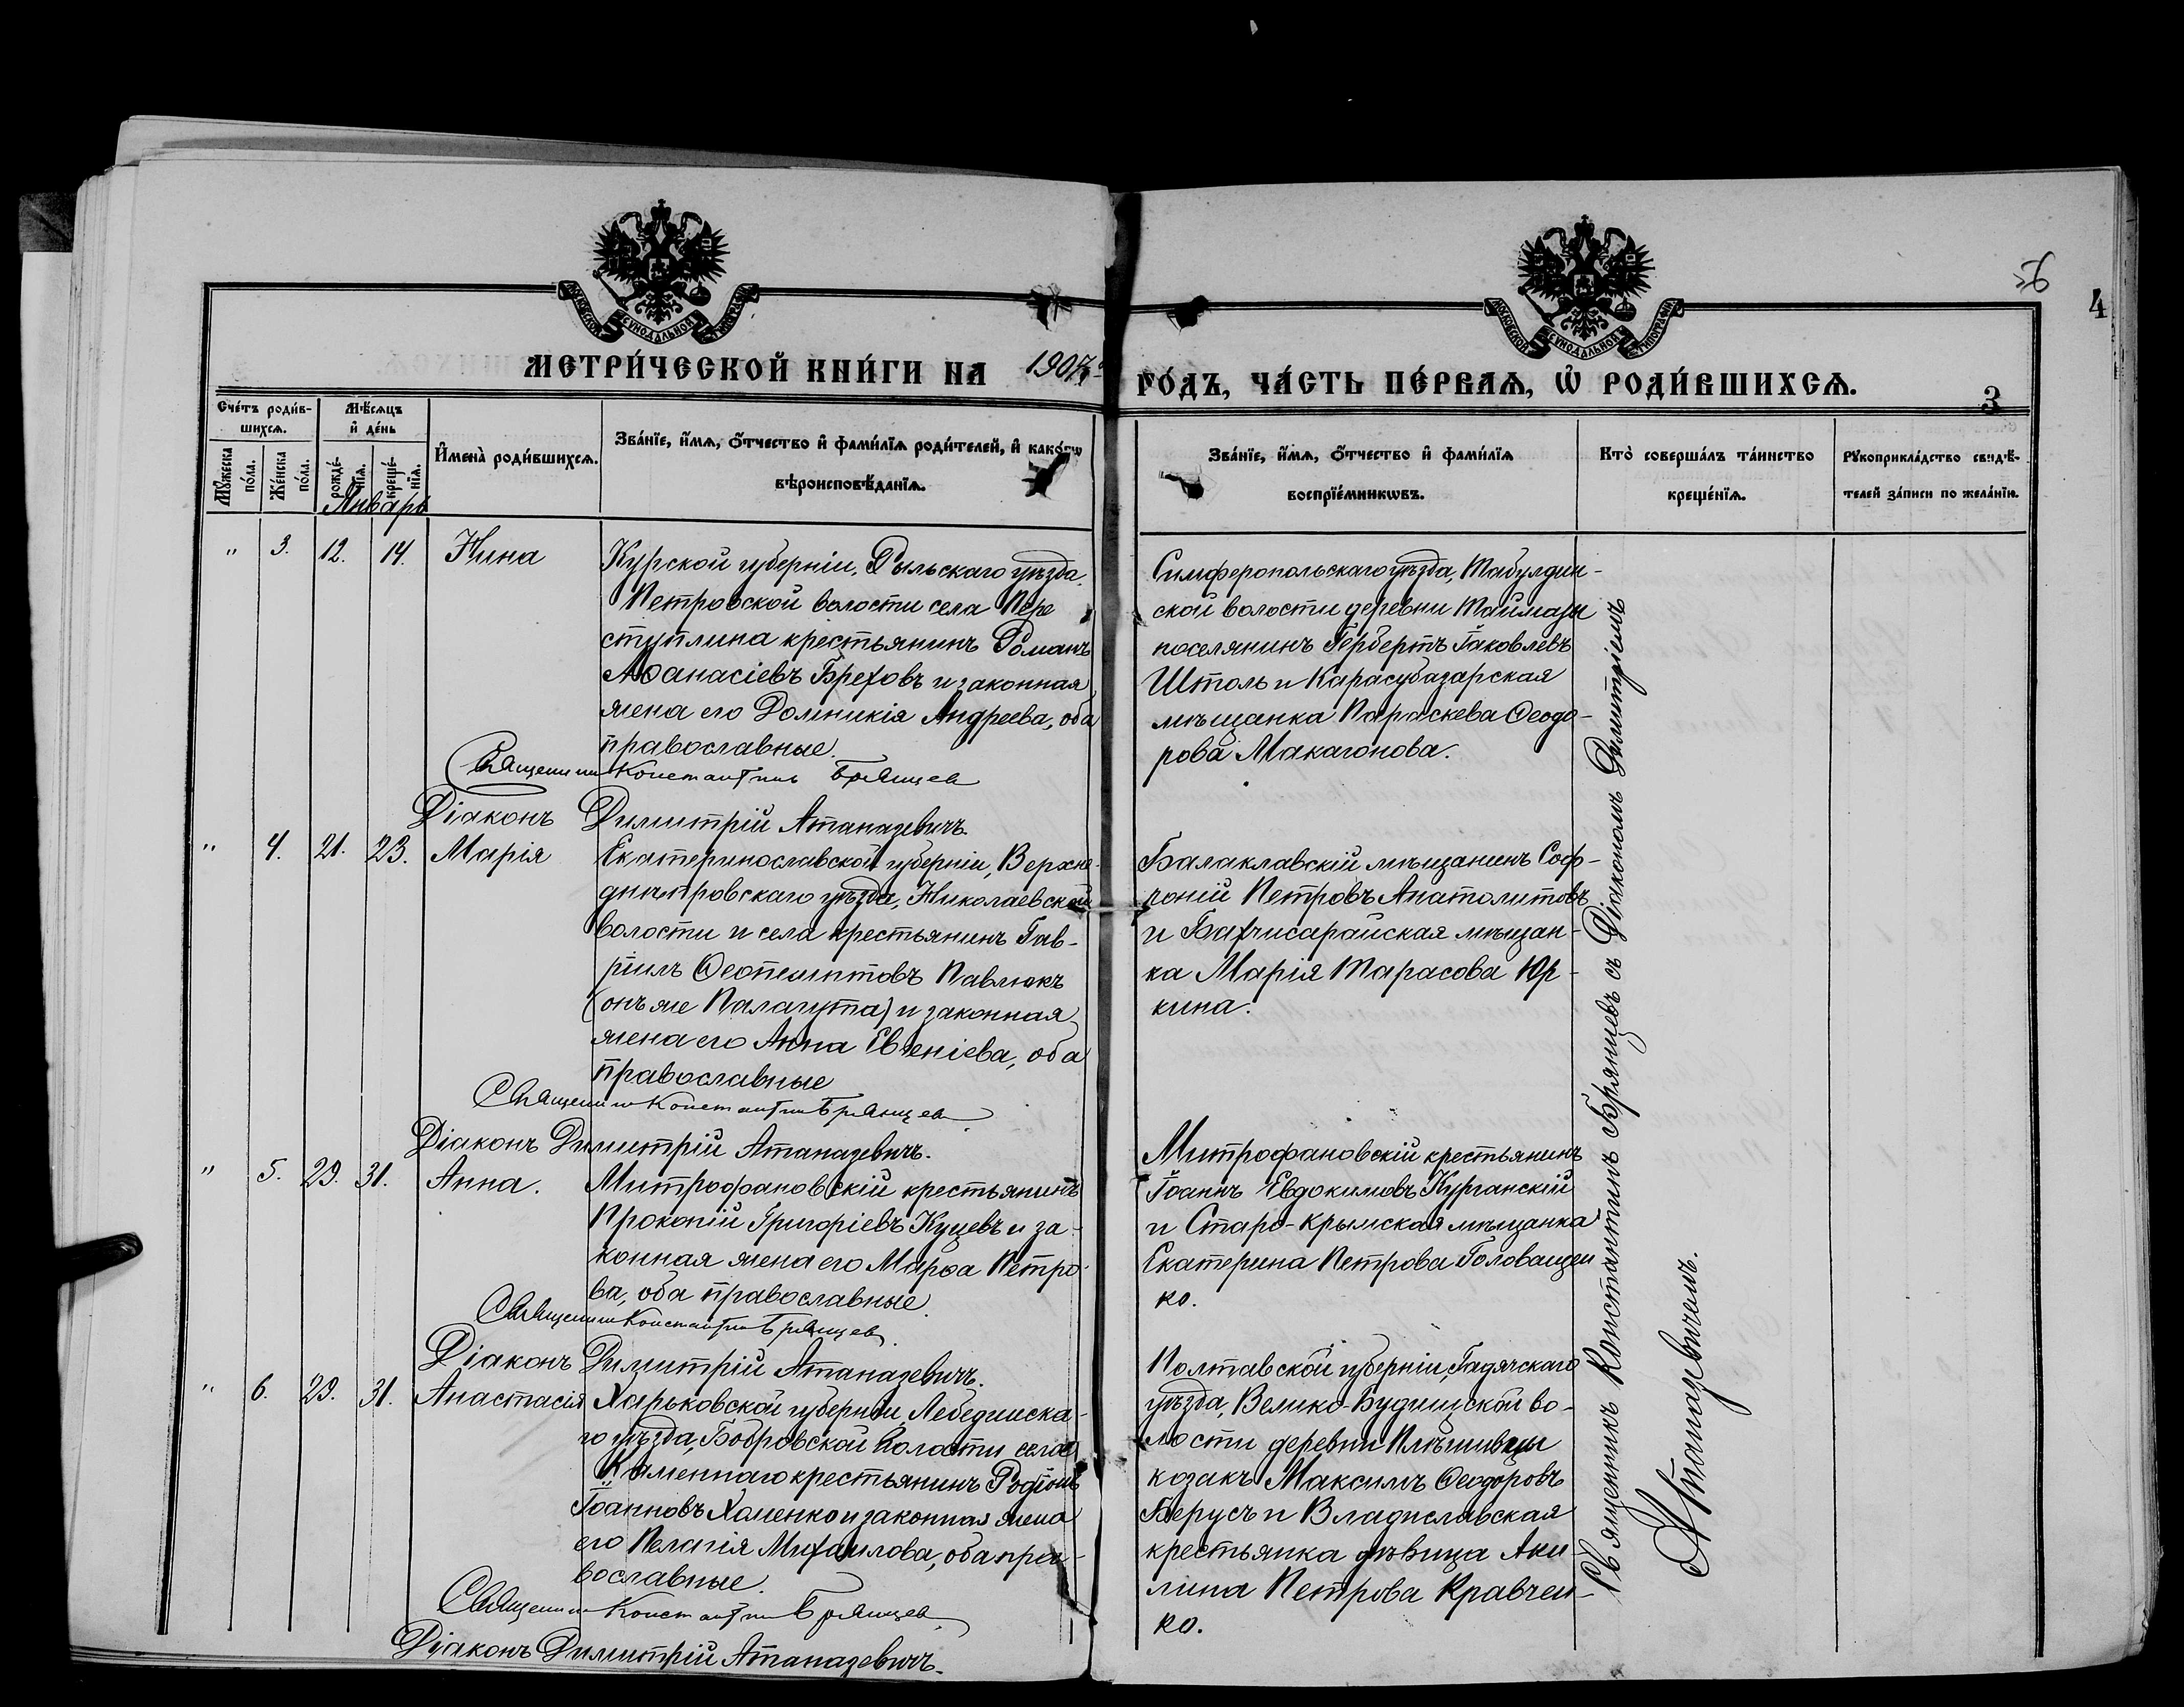 56
4
МОСКОВСКОЙ СѴНОДАЛЬНОЙ ТИПОГРАФІИ
МОСКОВСКОЙ СѴНОДАЛЬНОЙ ТИПОГРАФІИ
МЕТРИ́ЧЕСКОЙ КНИ́ГИ НА 1907й
ГО́ДЪ, ЧА́СТЬ ПЕ́РВАѦ, Ѡ҆ РОДИ́ВШИХСѦ.
3
Сче́тъ роди́в-
шихсѧ.
Мѣ́сѧцъ
и҆ де́нь
Мꙋ́жеска
по́ла.
Же́нска
по́ла.
рожде́-
нїѧ.
креще́-
нїѧ.
И҆мена̀ роди́вшихсѧ.
Зва́нїе, и҆́мѧ, ѻ҆́тчество и҆ фами́лїѧ роди́телей, и҆ како́гѡ
вѣроисповѣ́данїѧ.
Зва́нїе, и҆́мѧ, ѻ҆́тчество и҆ фами́лїѧ
воспрїе́мникѡвъ.
Кто̀ соверша́лъ та́инство
креще́нїѧ.
Рꙋкоприкла́дство свидѣ́-
телей за́писи по жела́нїю.
Январь
" 3. 12. 14. Нина
Курской губерніи, Рыльскаго уѣзда,
Петровской волости села Пере
ступлина крестьянинъ Романъ
Аѳанасіевъ Бреховъ и законная
жена его Домникія Андреева, оба
православные.
Священникъ Константинъ Брянцев
Діаконъ Димитрій Атаназевичъ.
Симферопольскаго уѣзда, Табулдин-
ской волости деревни Таймазы
поселянинъ Гербертъ Іаковлевъ
Штоль и Карасубазарская
мѣщанка Параскева Ѳеодо-
рова Макагонова.
" 4. 21. 23. Марія
Екатеринославской губерніи, Верхне-
днѣпровскаго уѣзда, Николаевской
волости и села крестьянинъ Гав-
ріилъ Ѳеопемптовъ Павлюкъ
(онъ же Палагута) и законная
жена его Анна Евгеніева, оба
православные
Священникъ Константинъ Брянцев
Діаконъ Димитрій Атаназевичъ.
Балаклавскій мѣщанинъ Соф-
роній Петровъ Анатолитовъ
и Бахчисарайская мѣщан-
ка Марія Тарасова Юр-
кина.
" 5. 29. 31. Анна.
Митрофановскій крестьянинъ
Прокопій Григоріевъ Куцевъ и за-
конная жена его Марѳа Петро-
ва, оба православные.
Священникъ Константинъ Брянцев
Діаконъ Димитрій Атаназевичъ.
Митрофановскій крестьянинъ
Іоаннъ Евдокимовъ Курганскій
и Старо-Крымская мѣщанка
Екатерина Петрова Головащен
ко.
" 6. 29. 31. Анастасія
Харьковской губерніи, Лебединска-
го уѣзда, Бобровской волости села
Каменнаго крестьянинъ Родіонъ
Іоанновъ Хоменко и законная жена
его Пелагія Михаилова, оба пра-
вославные.
Священникъ Константинъ Брянцев
Діаконъ Димитрій Атаназевичъ.
Полтавской губерніи, Гадячскаго
уѣзда, Велико-Будищской во-
лости деревни Плѣшивцы
козакъ Максимъ Ѳеодоровъ
Берусъ и Владиславская
крестьянка дѣвица Аки-
лина Петрова Кравчен-
ко.
Священникъ Константинъ Брянцевъ съ Діакономъ Димитріемъ
Атаназевичемъ.